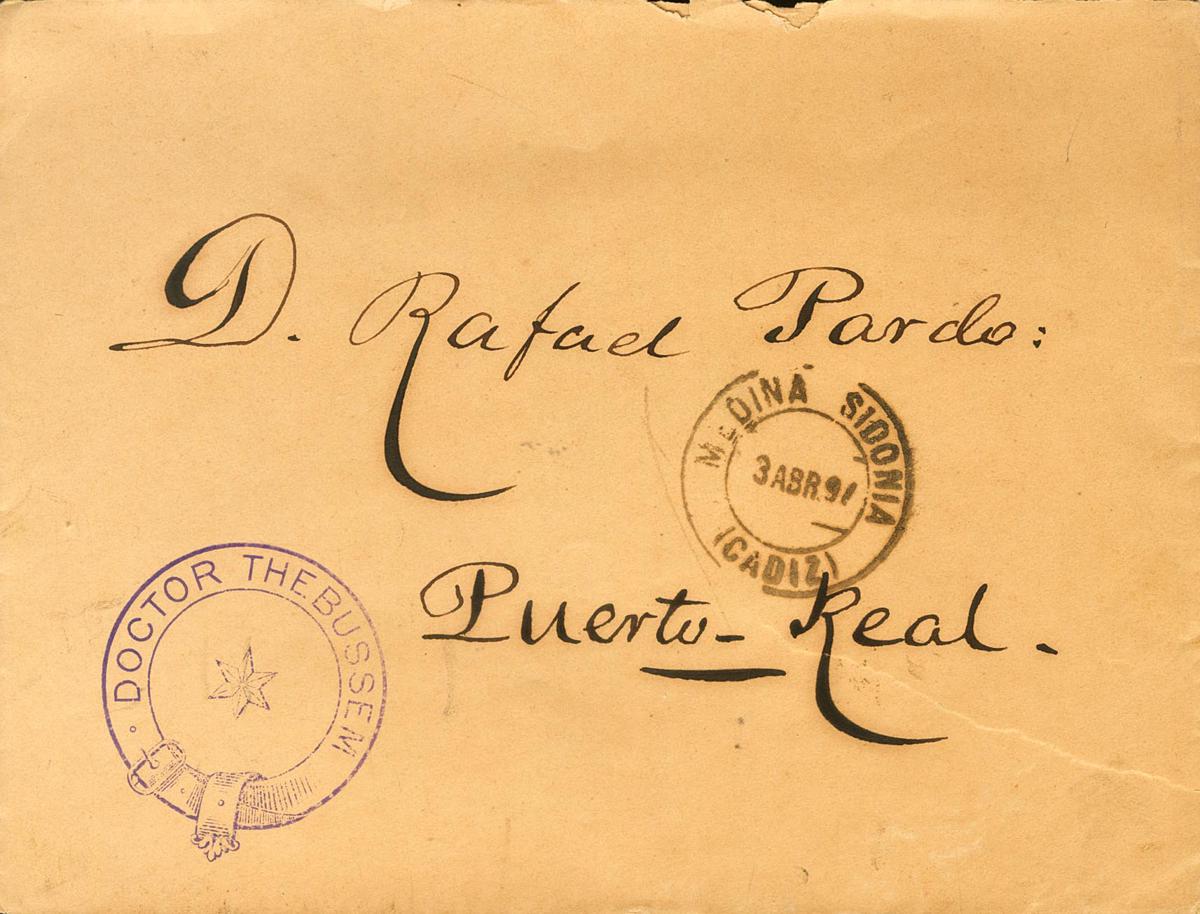 D. Rafael Pardo:
MEDINA SIDONIA
3 ABR. 91
(CADIZ)
Puerto-Real.
DOCTOR THEBUSSEM